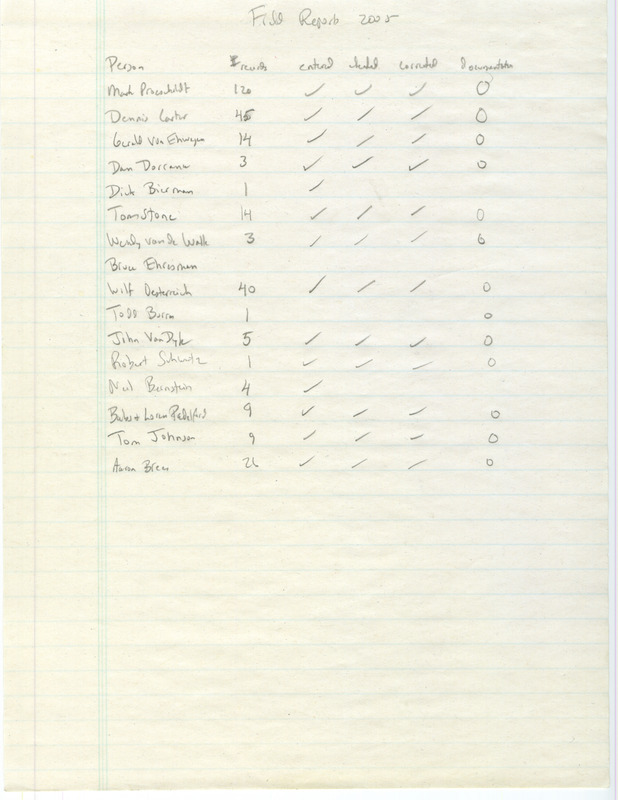 Field Reports 2005
Person # records entered checked corrected Documentation
Mark Proescholdt 120 ✓ ✓ ✓ 0
Dennis Carter 45 ✓ ✓ ✓ 0
Gerald Von Ehwegen 14 ✓ ✓ ✓ 0
Dan 3 ✓ ✓ ✓ 0
Dick Bierman 1 ✓
Tom Stone 14 ✓ ✓ ✓ 0
Wendy van de Walle 3 ✓ ✓ ✓ 0
Bruce Ehresman
Wilf Oesterreich 40 ✓ ✓ ✓ 0
Todd Burra 1 0
John Van Dyk 5 ✓ ✓ ✓ 0
Robert Schwitz 1 ✓ ✓ ✓ 0
Neil Bernstein 4 ✓
Loren Padelford 9 ✓ ✓ ✓ 0
Tom Johnson 9 ✓ ✓ ✓ 0
Aaron Brees 26 ✓ ✓ ✓ 0